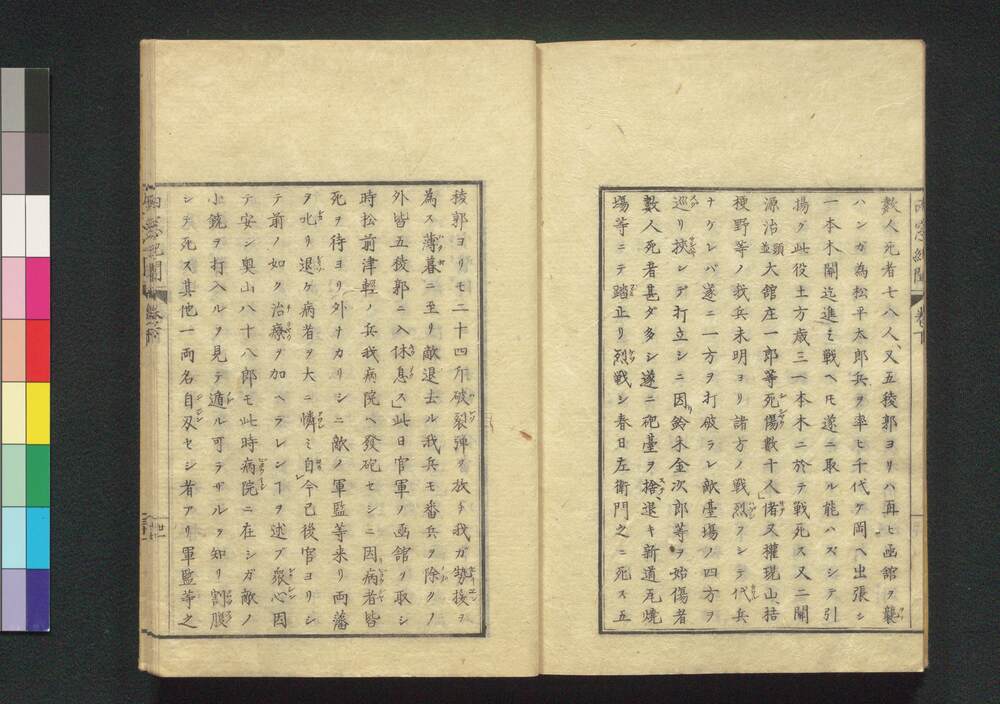 數人死者七八人、又五稜郭ヨリハ再ヒ函館ヲ襲
ハンガ為松平太郎兵ヲ率ヒ千代ケ岡ヘ出張シ
一本木關迄進ミ戰ヘ𪜈遂ニ取ル能ハズシテ引
揚グ此役土方歳三一本木ニ於テ戰死ス又二關
源治並頭大舘庄一郎等死傷數十人」偖又權現山、桔
梗野等ノ我兵未明ヨリ諸方ノ戰烈フシテ代兵
ナケレバ遂ニ一方ヲ打破ラレ敵臺場ノ四方ヲ
巡リ挾ンデ打立シニ因鈴木金次郎等ヲ始傷者
數人死者甚ダ多シ遂ニ砲臺ヲ捨退キ新道瓦焼
場等ニテ踏止リ烈戰シ春日左衛門之ニ死ス五
稜郭ヨリモ二十四斤破裂弾ヲ放チ我ガ勢援ヲ
為ス薄暮ニ至リ敵退去ル我兵モ番兵ヲ除クノ
外皆五稜郭ニ入休息ス」此日官軍ノ函館ヲ取シ
時松前津輕ノ兵我病院ヘ發砲セシニ因病者皆
死ヲ待ヨリ外ナカリシニ敵ノ軍監等来リ両藩
ヲ叱リ退ケ病者ヲ大ニ憐ミ自今已後官ヨリシ
テ前ノ如ク治療ヲ加ヘラレンヿヲ述ブ衆心因
テ安シ奥山八十八郎モ此時病院ニ在シガ敵ノ
小銃ヲ打入ルヲ見テ遁ル可ラザルヲ知リ割腹
シテ死ス其他一両名自刃セシ者アリ軍監等之